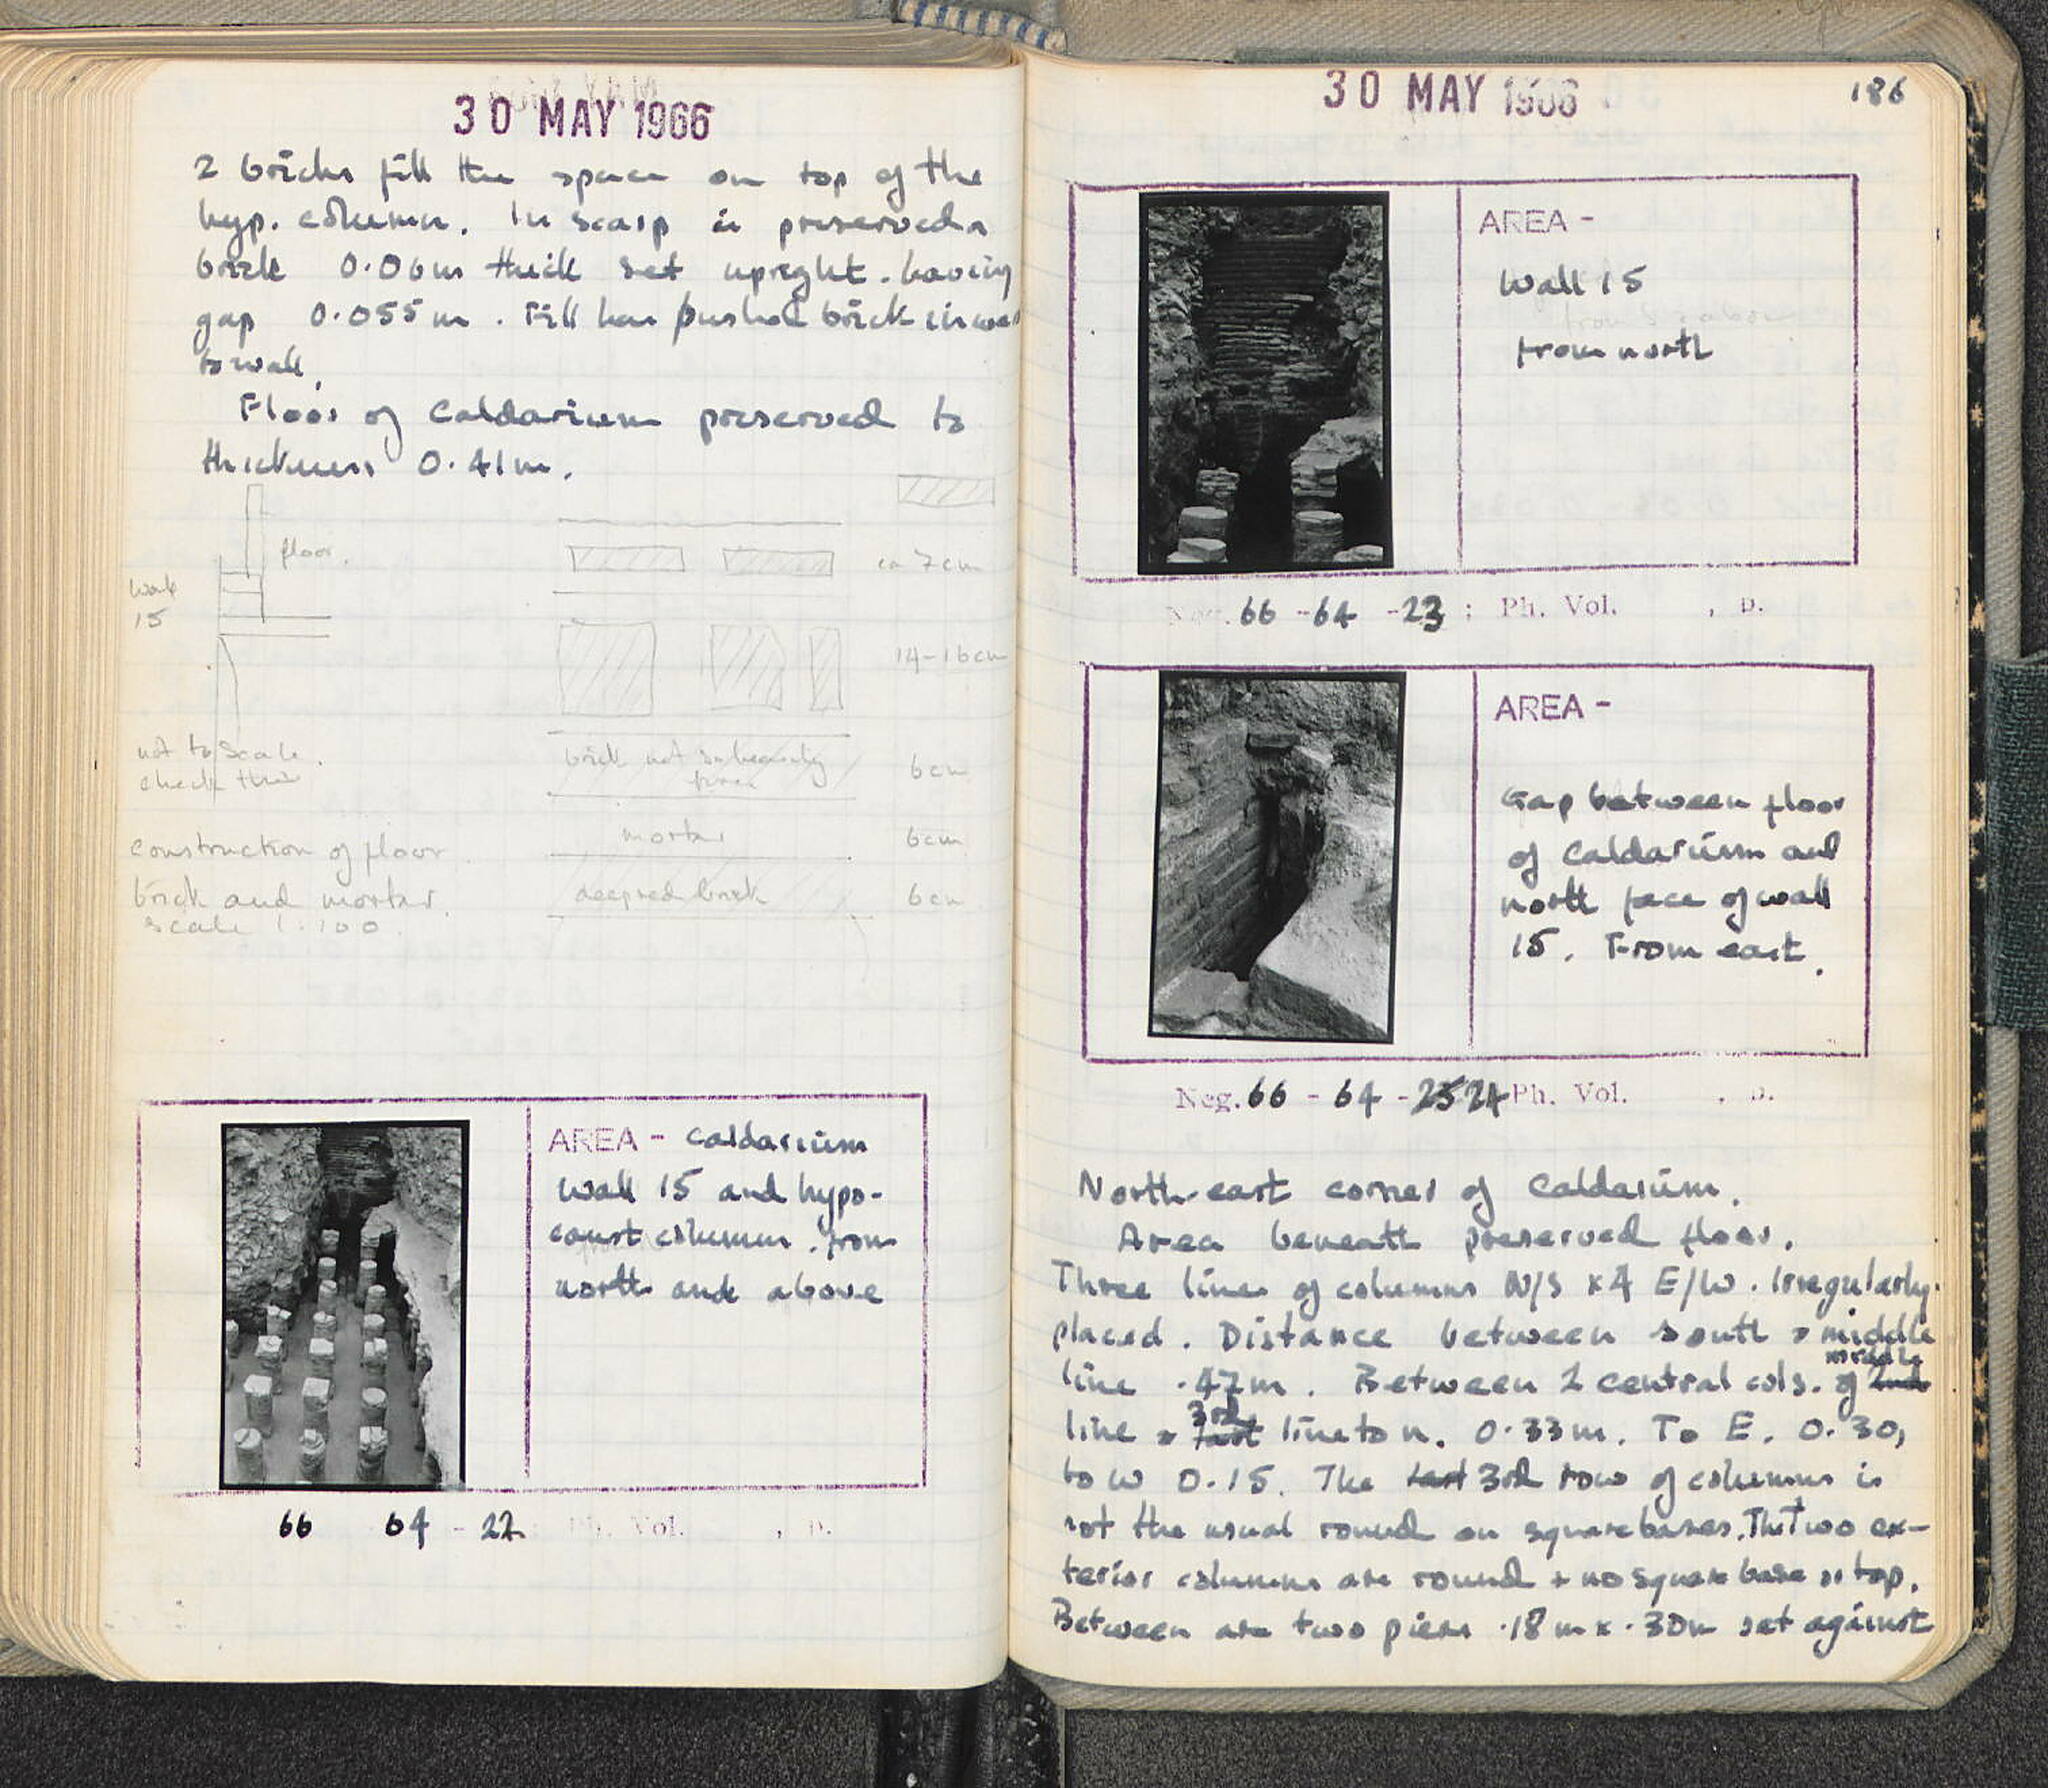 30 MAY 1966
2 bricks fill the space on top of the
hyp. column. In scarp is preserved a
brick 0.06m thick set upright. having
gap 0.055m. Fill has pushed brick in
to wall.
Floor of Caldarium preserved to
thickness 0.41m.
floor.
Wall
15
ca 7cm
14-16cm
not to scale.
check this
brick not so heavily
fired
6cm
mortar
6cm
construction of floor
brick and mortar.
scale 1:100
deep red brick
6cm
AREA - Caldarium
Wall 15 and hypo-
caust columns. from
north and above
66 64 - 22 : Ph. Vol. , p.
30 MAY 1966
186
AREA -
Wall 15
from north
Neg. 66 - 64 - 23 ; Ph. Vol. , p.
AREA -
Gap between floor
of Caldarium and
north face of wall
15. From east.
Neg. 66 - 64 - 25 24 Ph. Vol. , p.
North-east corner of Caldarium.
Area beneath preserved floor.
Three lines of columns N/S x 4 E/W. Irregularly
placed. Distance between south + middle
line .47m. Between 2 central cols. of 2nd middle
line + last 3rd line to n. 0.33m. To E. 0.30,
to W 0.15. The last 3rd row of columns is
not the usual round on square bases. The two ex-
terior columns are round + no square base or top.
Between are two piers .18m x .30m set against